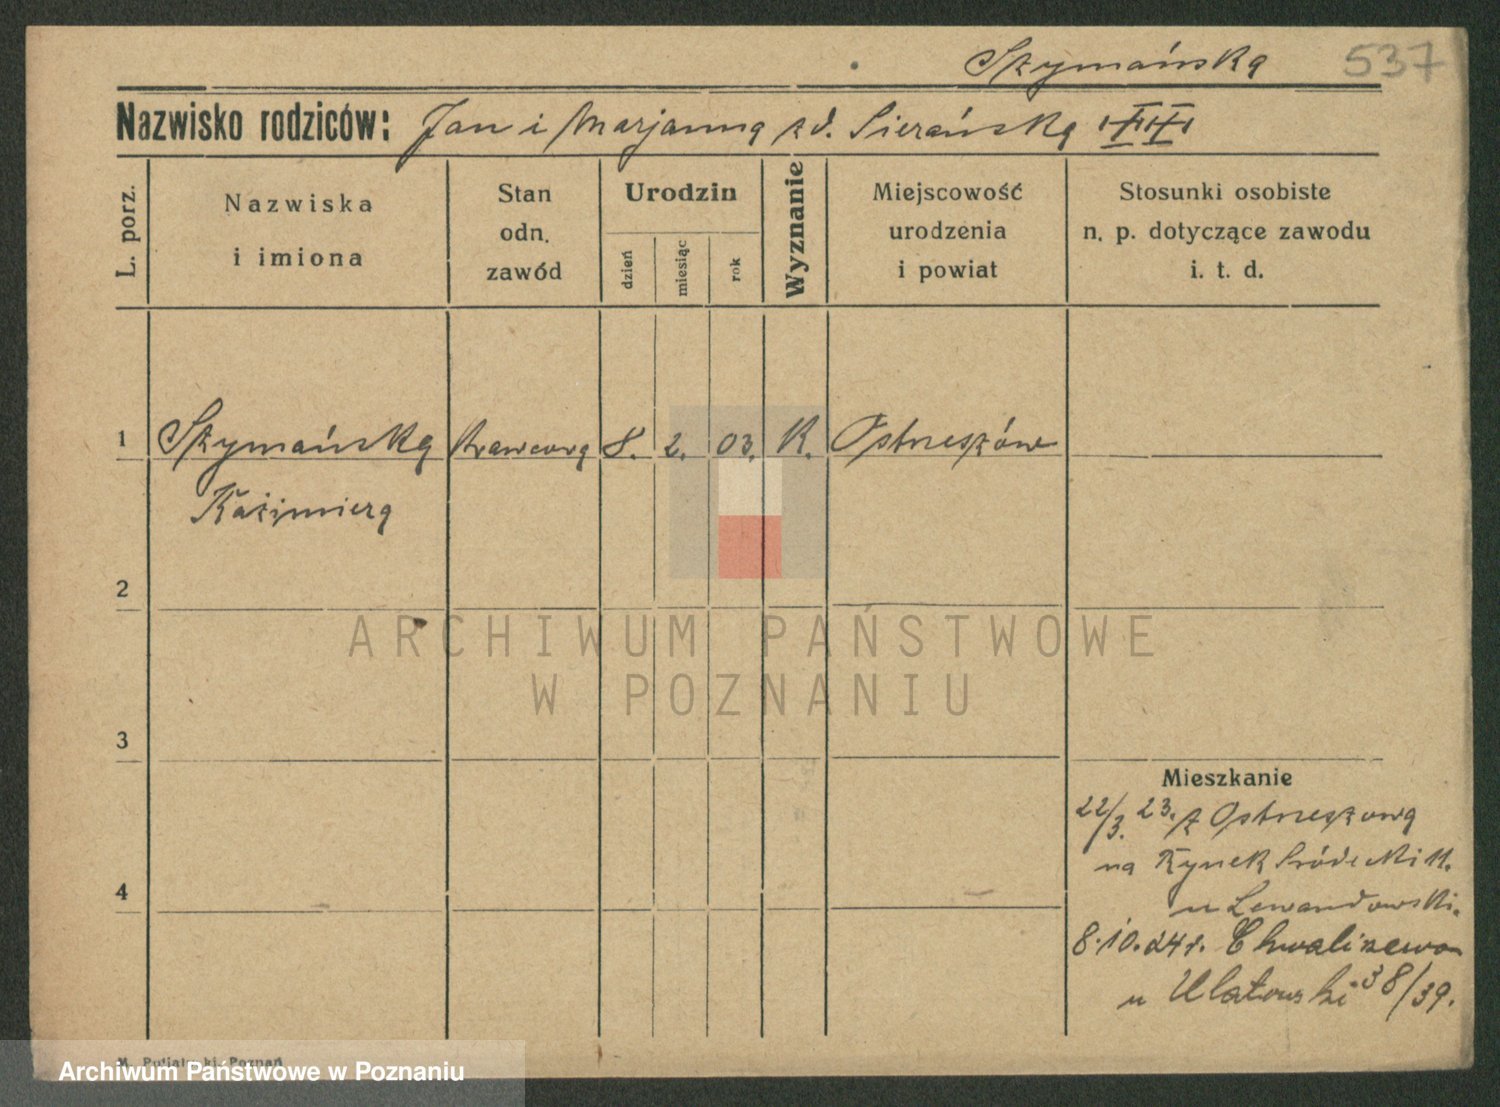 Szymańska 537
Nazwisko rodziców: Jan i Marjanna z d. Sierańska
L. porz.
Nazwiska
i imiona
Stan
odn.
zawód
Urodzin
dzień
miesiąc
rok
Wyznanie
Miejscowość
urodzenia
i powiat
Stosunki osobiste
n. p. dotyczące zawodu
i. t. d.
1 Szymańska Krawcowa 8. 2. 03. K. Ostrzeszów
Kazimiera
2
ARCHIWUM PAŃSTWOWE
W POZNANIU
3
Mieszkanie
22/3. 23. z Ostrzeszowa
na Rynek Śródecki 11.
4
u Lewandowski.
8.10.24r. Chwaliszewo
u Ulatowski 38/39.
Poznań
Archiwum Państwowe w Poznaniu